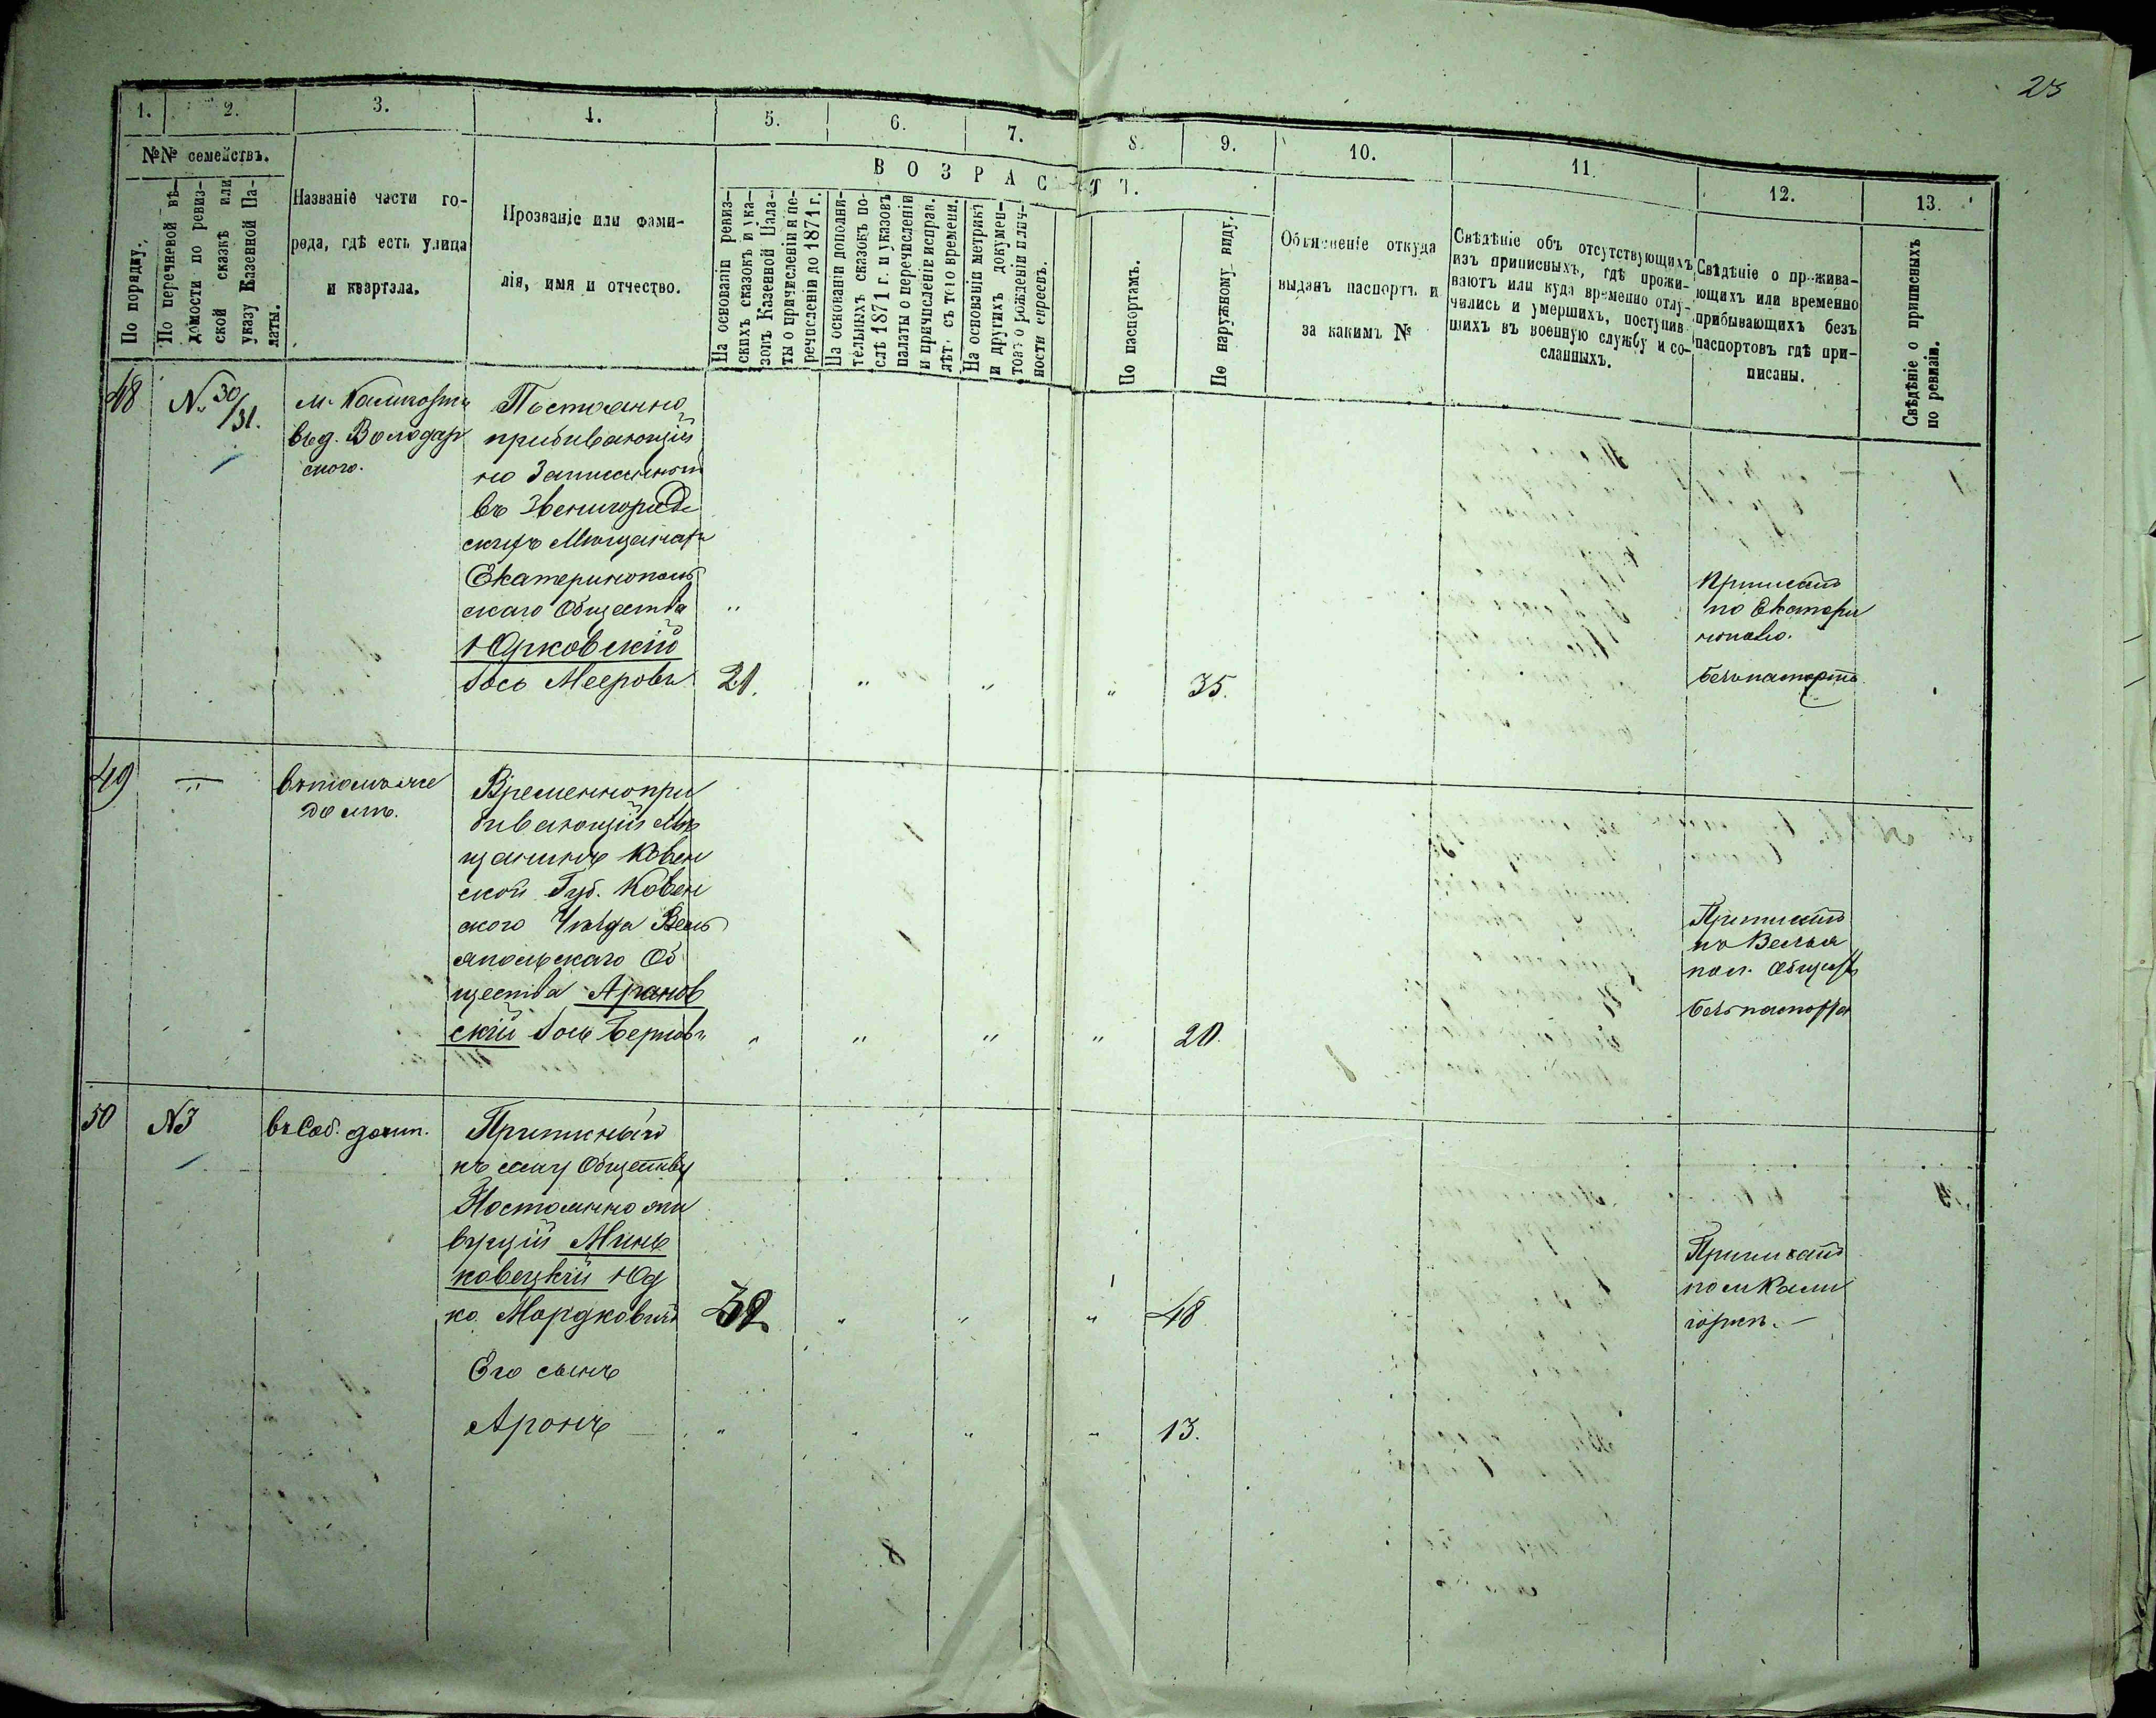 25
1. 2. 3. 4. 5. 6. 7. 8. 9. 10. 11. 12. 13.
№№ семействъ.
По порядку.
По перечневой вѣ-
домости по ревиз-
ской сказкѣ или
указу Казенной Па-
латы.
Названіе части го-
рода, гдѣ есть улица
и квартала.
Прозваніе или фами-
лія, имя и отчество.
ВОЗРАСТЪ.
На основаніи ревиз-
скихъ сказокъ и ука-
зовъ Казенной Пала-
ты о причисленіи и пе-
речисленіи до 1871 г.
На основаніи дополни-
тельныхъ сказокъ по-
слѣ 1871 г. и указовъ
палаты о перечисленіи
и причисленіе исправ.
лѣт. съ того времени.
На основаніи метрикъ
и другихъ докумен-
товъ о рожденіи и лич-
ности евреевъ.
По паспортамъ.
По наружному виду.
Объясненіе откуда
выданъ паспортъ и
за какимъ №
Свѣдѣніе объ отсутствующихъ
изъ приписныхъ, гдѣ прожи-
ваютъ или куда временно отлу-
чились и умершихъ, поступив-
шихъ въ военную службу и со-
сланныхъ.
Свѣдѣніе о прожива-
ющихъ или временно
прибывающихъ безъ
паспортовъ гдѣ при-
писаны.
Свѣдѣніе о приписныхъ
по ревизіи.
48
№ 30/31.
въ д. Володар
ского.
Постоянно
прибивающій
но Записанный
въ Звенигород
скихъ Мещанахъ
Екатеринополь
скаго Общества
Юрковскій
Іось Мееровъ
21. " " " 35.
Приписанъ
по Екатери
нополю.
безъ паспорта
49
въ томъ же
домѣ.
Временно при
бивающій Мѣ
щанинъ Ковен
ской Губ. Ковен
ского Уѣзда Виль
япольскаго Об
щества Аранов
скій Іось Берковъ
" " " " 20.
Приписанъ
по Вилья
пол. Обществ
безъ паспорта
50
№3
въ Соб. домѣ.
Приписный
къ сему Обществу
Постоянно жи
вущійМинь
ковецкій Юд
ко Мордковичъ
32 " " " 48
Приписанъ
по м Кали
горкѣ.
Его сынъ
Аронъ
" " " " 13.